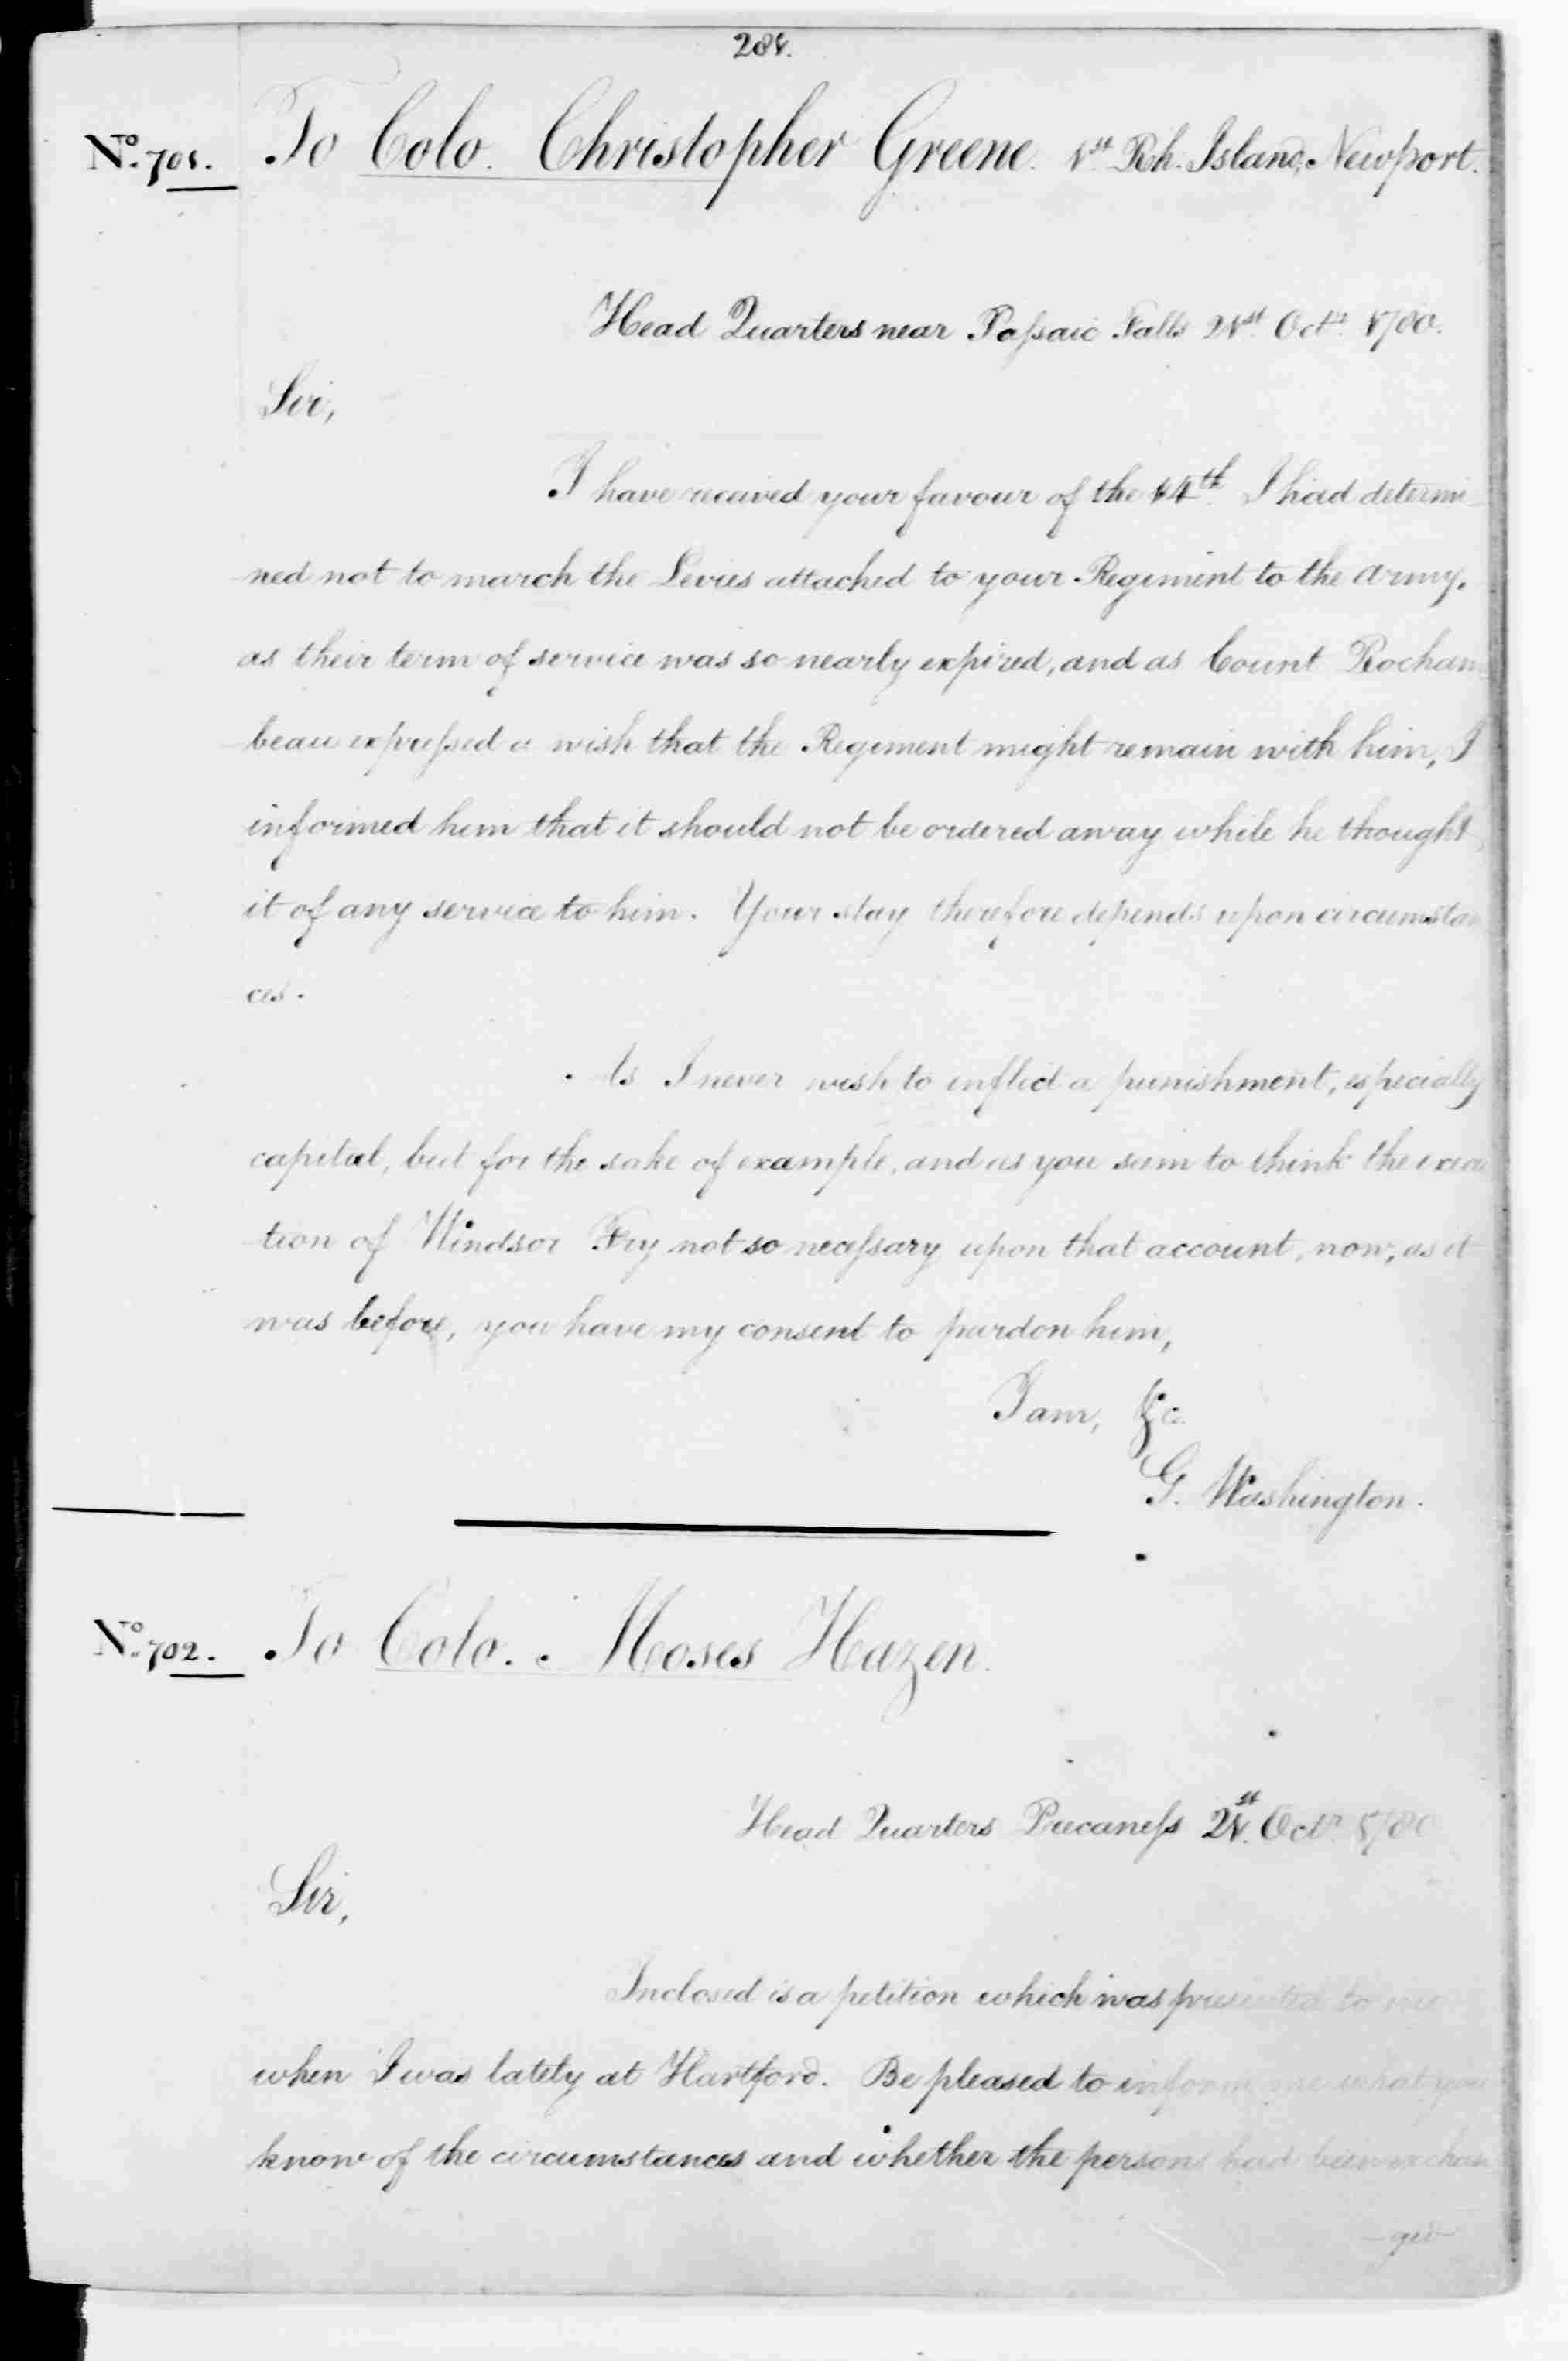 281.
No. 701. To Colo. Christopher Greene. 1st Rh. Island, Newport.
Head Quarters near Passaic Falls 21st Octr. 1780.
Sir,
I have received your favour of the 14th. I had determi-
ned not to march the Levies attached to your Regiment to the army,
as their term of service was so nearly expired, and as Count Rocham-
beau expressed a wish that the Regiment might remain with him, I
informed him that it should not be ordered away while he thought
it of any service to him. Your stay therefore depends upon circumstan
ces.
As I never wish to inflict a punishment, especially
capital, but for the sake of example, and as you seem to think the execu
tion of Windsor Fry not so necessary upon that account, now, as it
was before, you have my consent to pardon him,
I am, &c.
G. Washington.
No. 702. To Colo. Moses Hazen.
Head Quarters Precaness 21st. Octr. 1780
Sir,
Inclosed is a petition which was presented to me
when I was lately at Hartford. Be pleased to inform me what you
know of the circumstances and whether the persons had been exchan
-ged